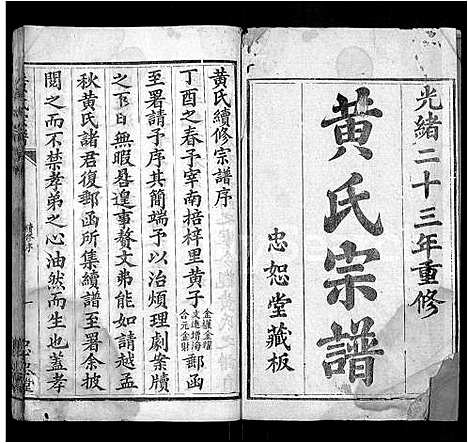 光緒二十三年重修
黃氏宗譜
忠恕堂藏板
黃氏續修宗譜序
丁酉之春予宰南掊梓里黃子
金堦金耀
文進增海
合元金財
郵函
至署請予序其簡端予以治煩理劇案牘
之下日無暇晷遑事贅文弗能如請越孟
秋黃氏諸君復郵函所集續譜至署余披
閱之而不禁孝弟之心油然而生也蓋孝